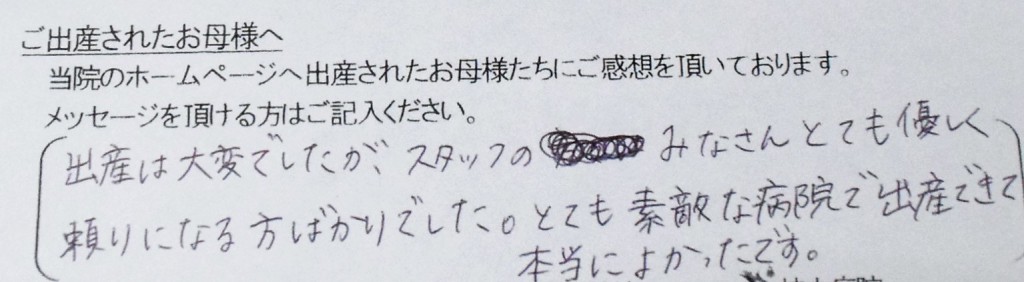 ご出産されたお母様へ
当院のホームページへ出産されたお母様たちにご感想を頂いております。
メッセージを頂ける方はご記入ください。
出産は大変でしたが、スタッフの みなさんとても優しく
頼りになる方ばかりでした。とても素敵な病院で出産できて
本当によかったです。